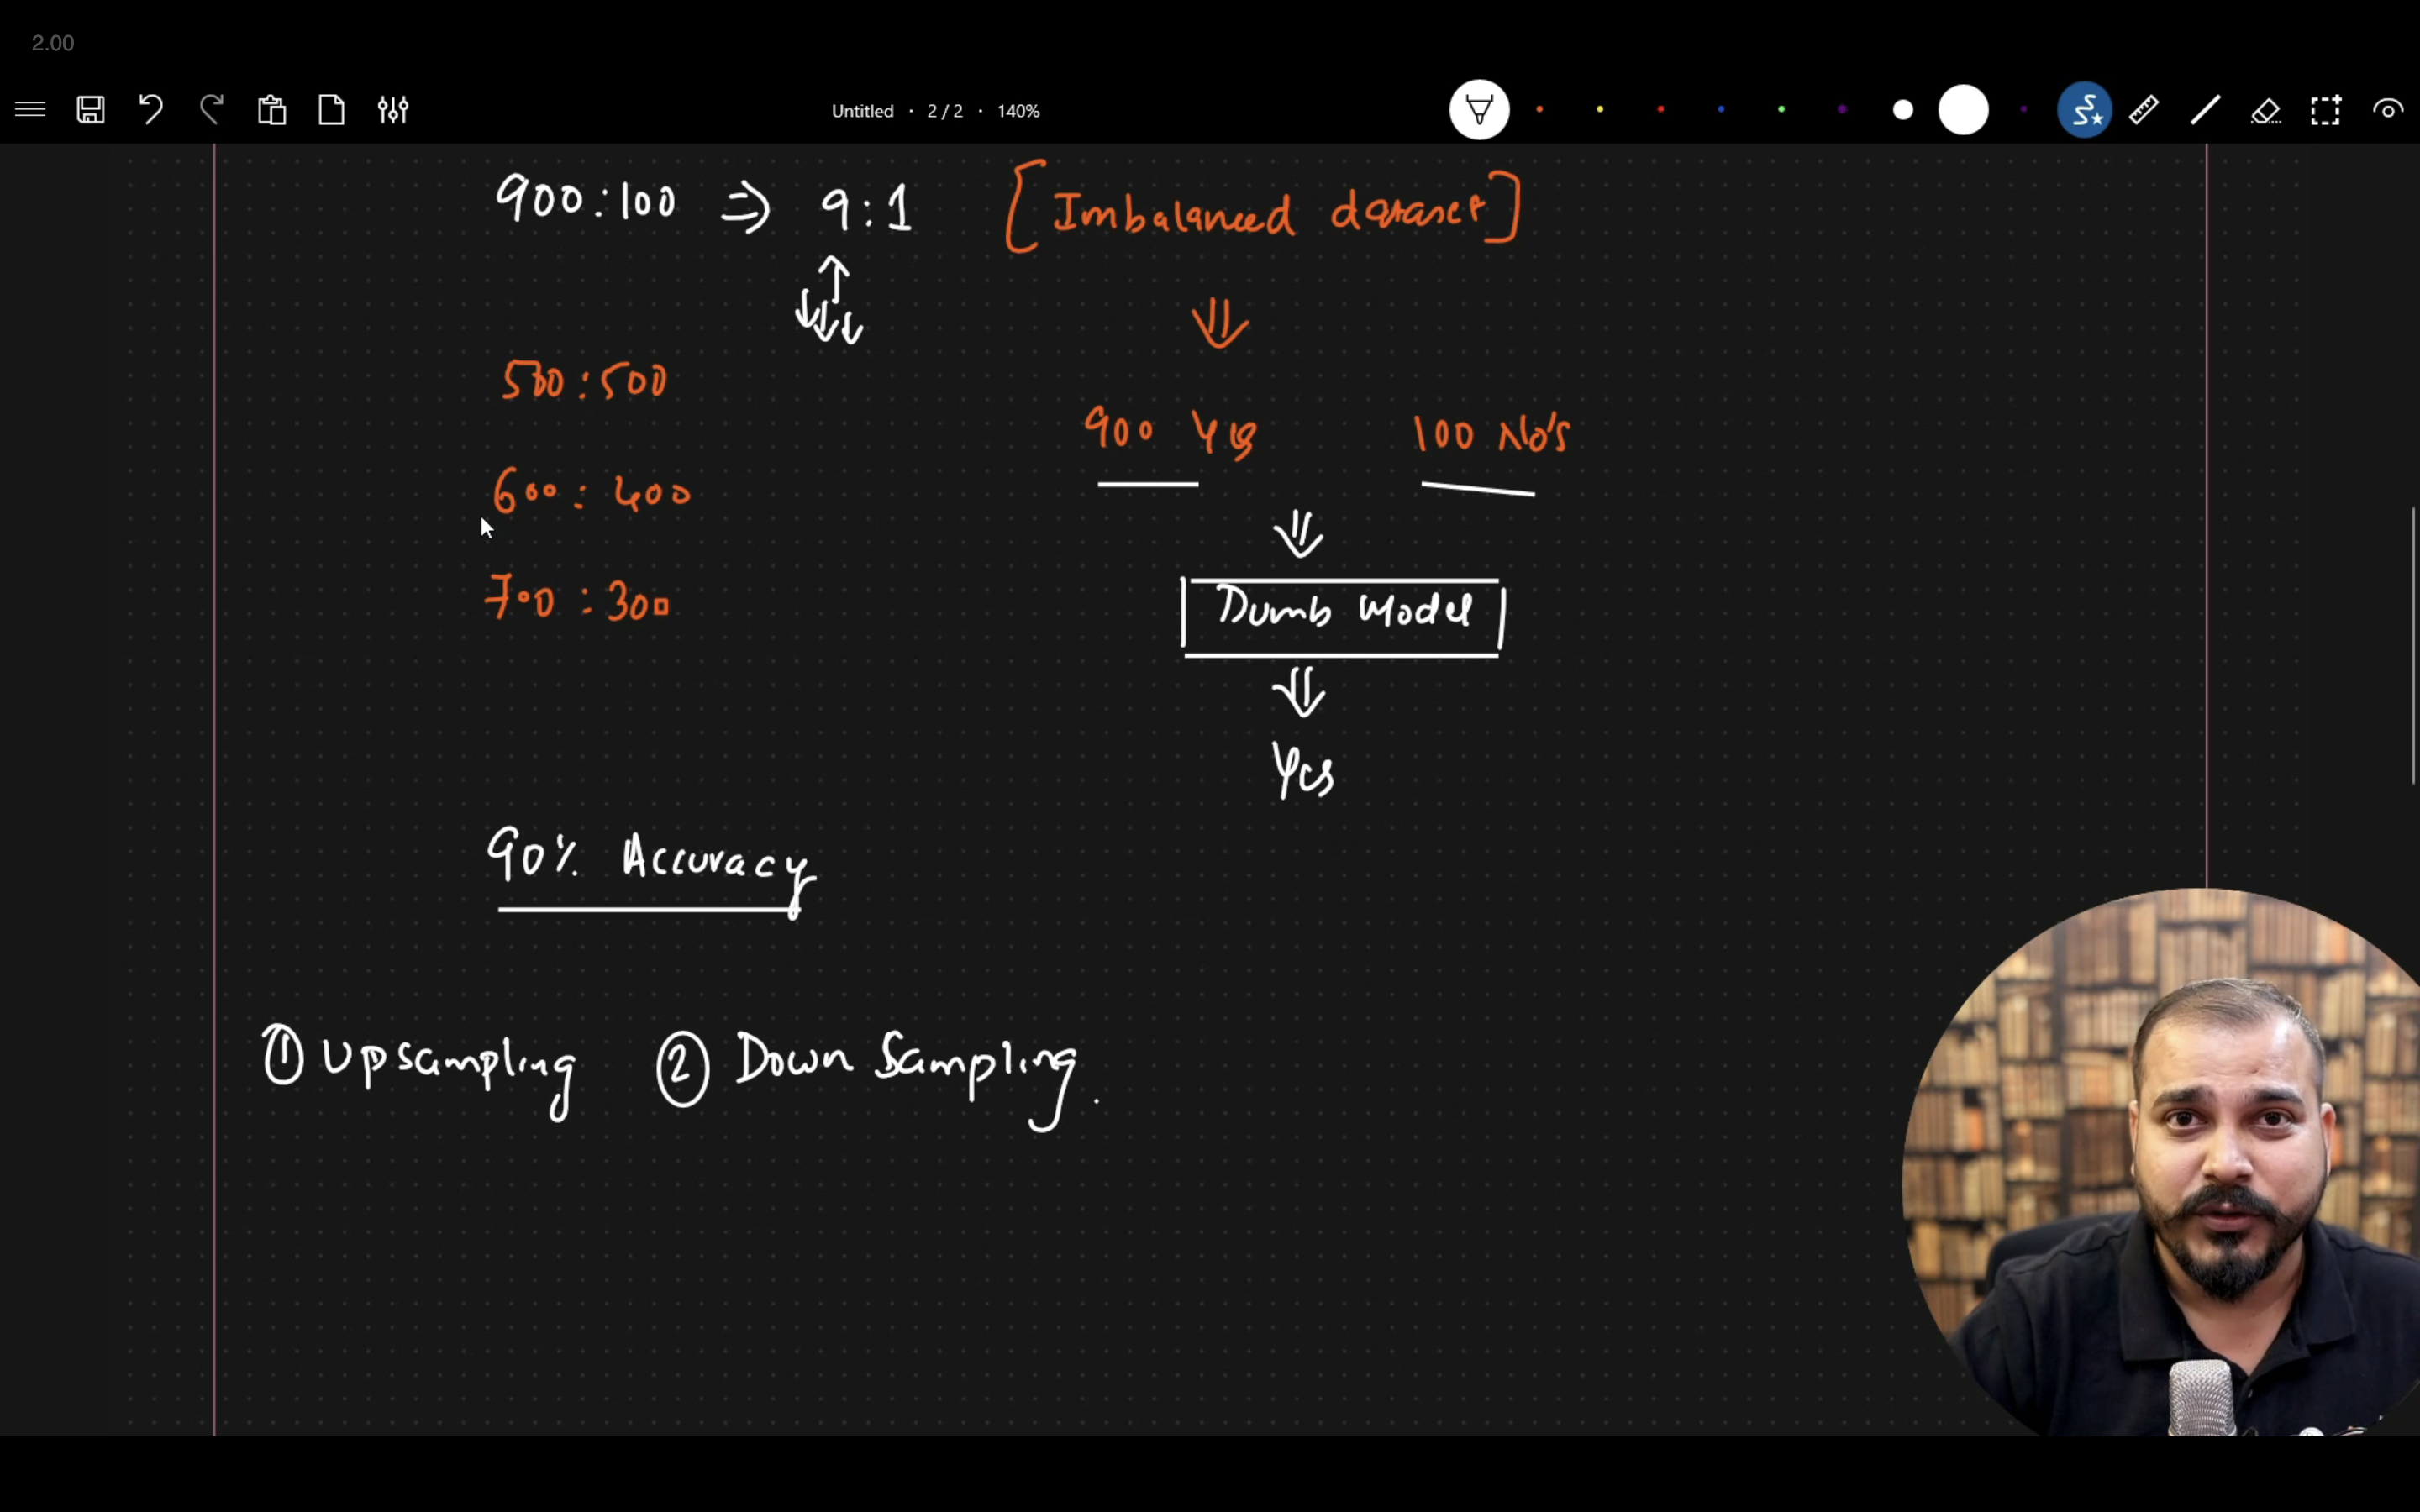 2.00
Untitled · 2 / 2 · 140%
900:100 ⇒ 9:1 [Imbalanced dataset]
500:500
900 Yes 100 No's
600: 400
700:300
Dumb Model
Yes
90% Accuracy
① Upsampling ② Down Sampling.